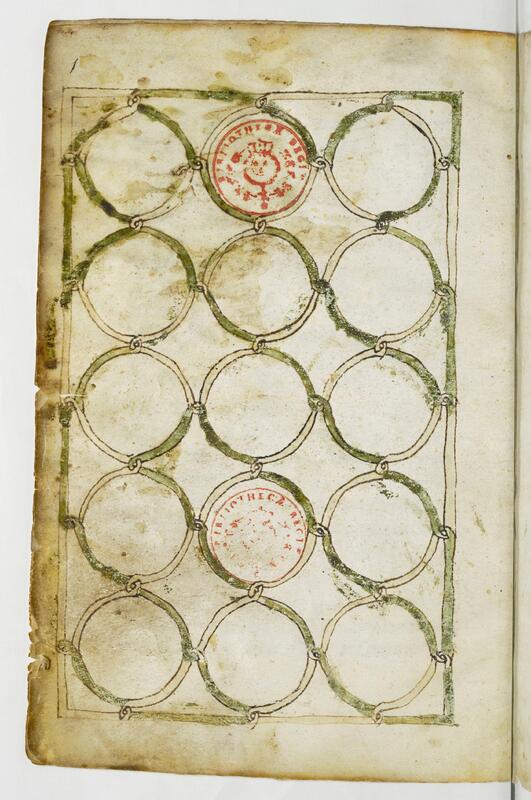 1
BIBLIOTHECÆ REGIÆ
BIBLIOTHECÆ REGIÆ